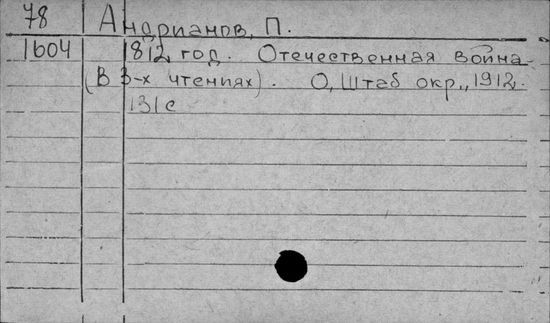 78 Андрианов, П.
1604 1812 год. Отечественная война
(В 3-х чтениях). О, Штаб окр., 1912.
131с